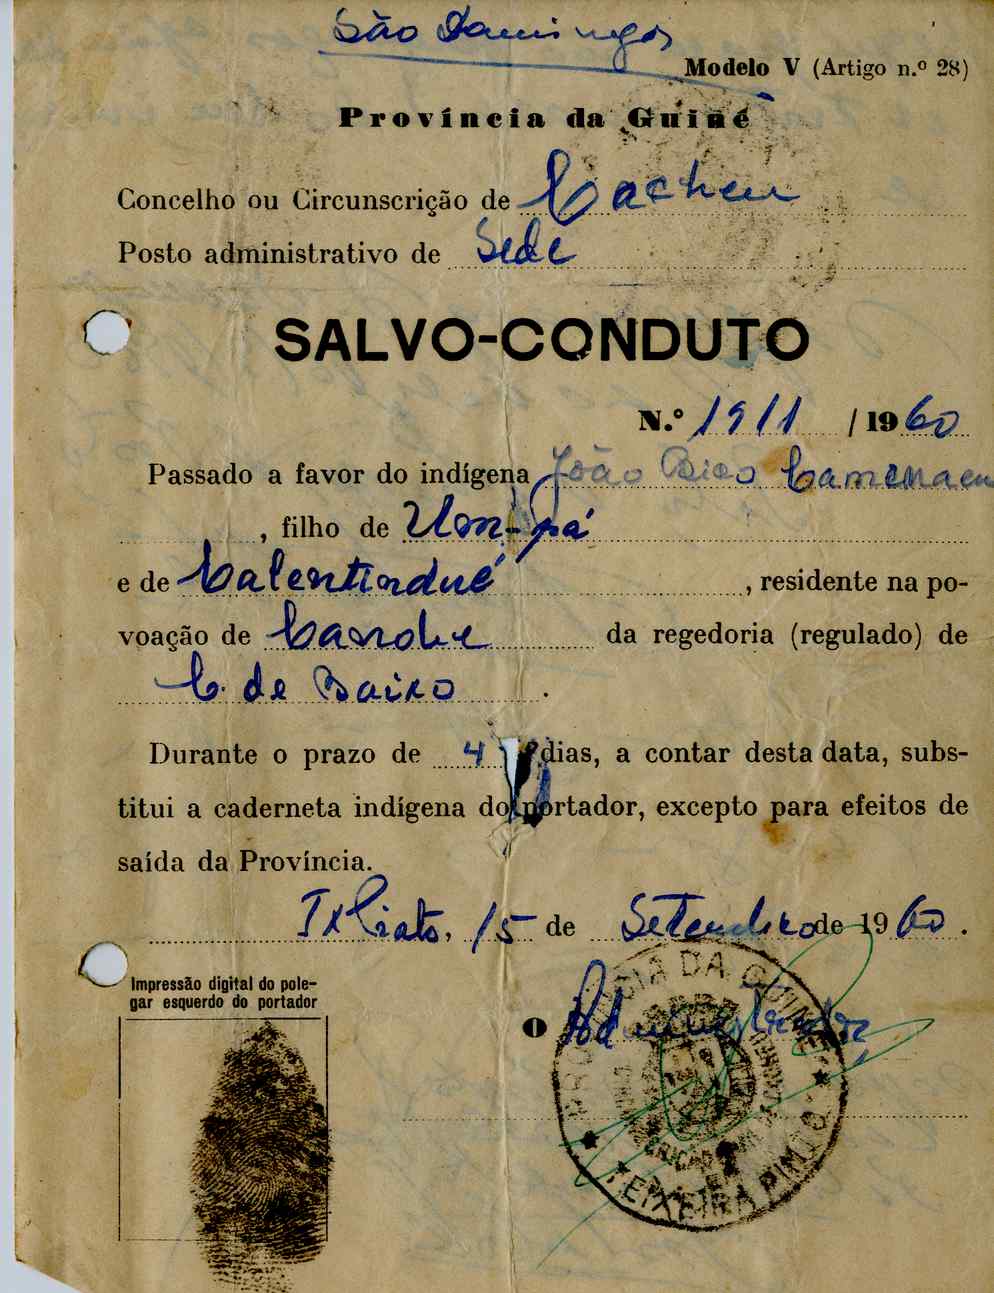 São Domingos
Modelo V (Artigo n.º 28)
Província da Guiné
Concelho ou Circunscrição de Cacheu
Posto administrativo de Sede
SALVO-CONDUTO
N.º 1911 /1960
Passado a favor do indígena João Bico
, filho de Um-pá
e de Calentindué, residente na po-
voação de da regedoria (regulado) de
C. de Baixo.
Durante o prazo de 4 dias, a contar desta data, subs-
titui a caderneta indígena do portador, excepto para efeitos de
saída da Província.
Tx Pinto, 15 de Setembro de 1960.
Impressão digital do pole-
gar esquerdo do portador
O Administrador,
PROVÍNCIA DA GUINÉ
TEIXEIRA PINTO